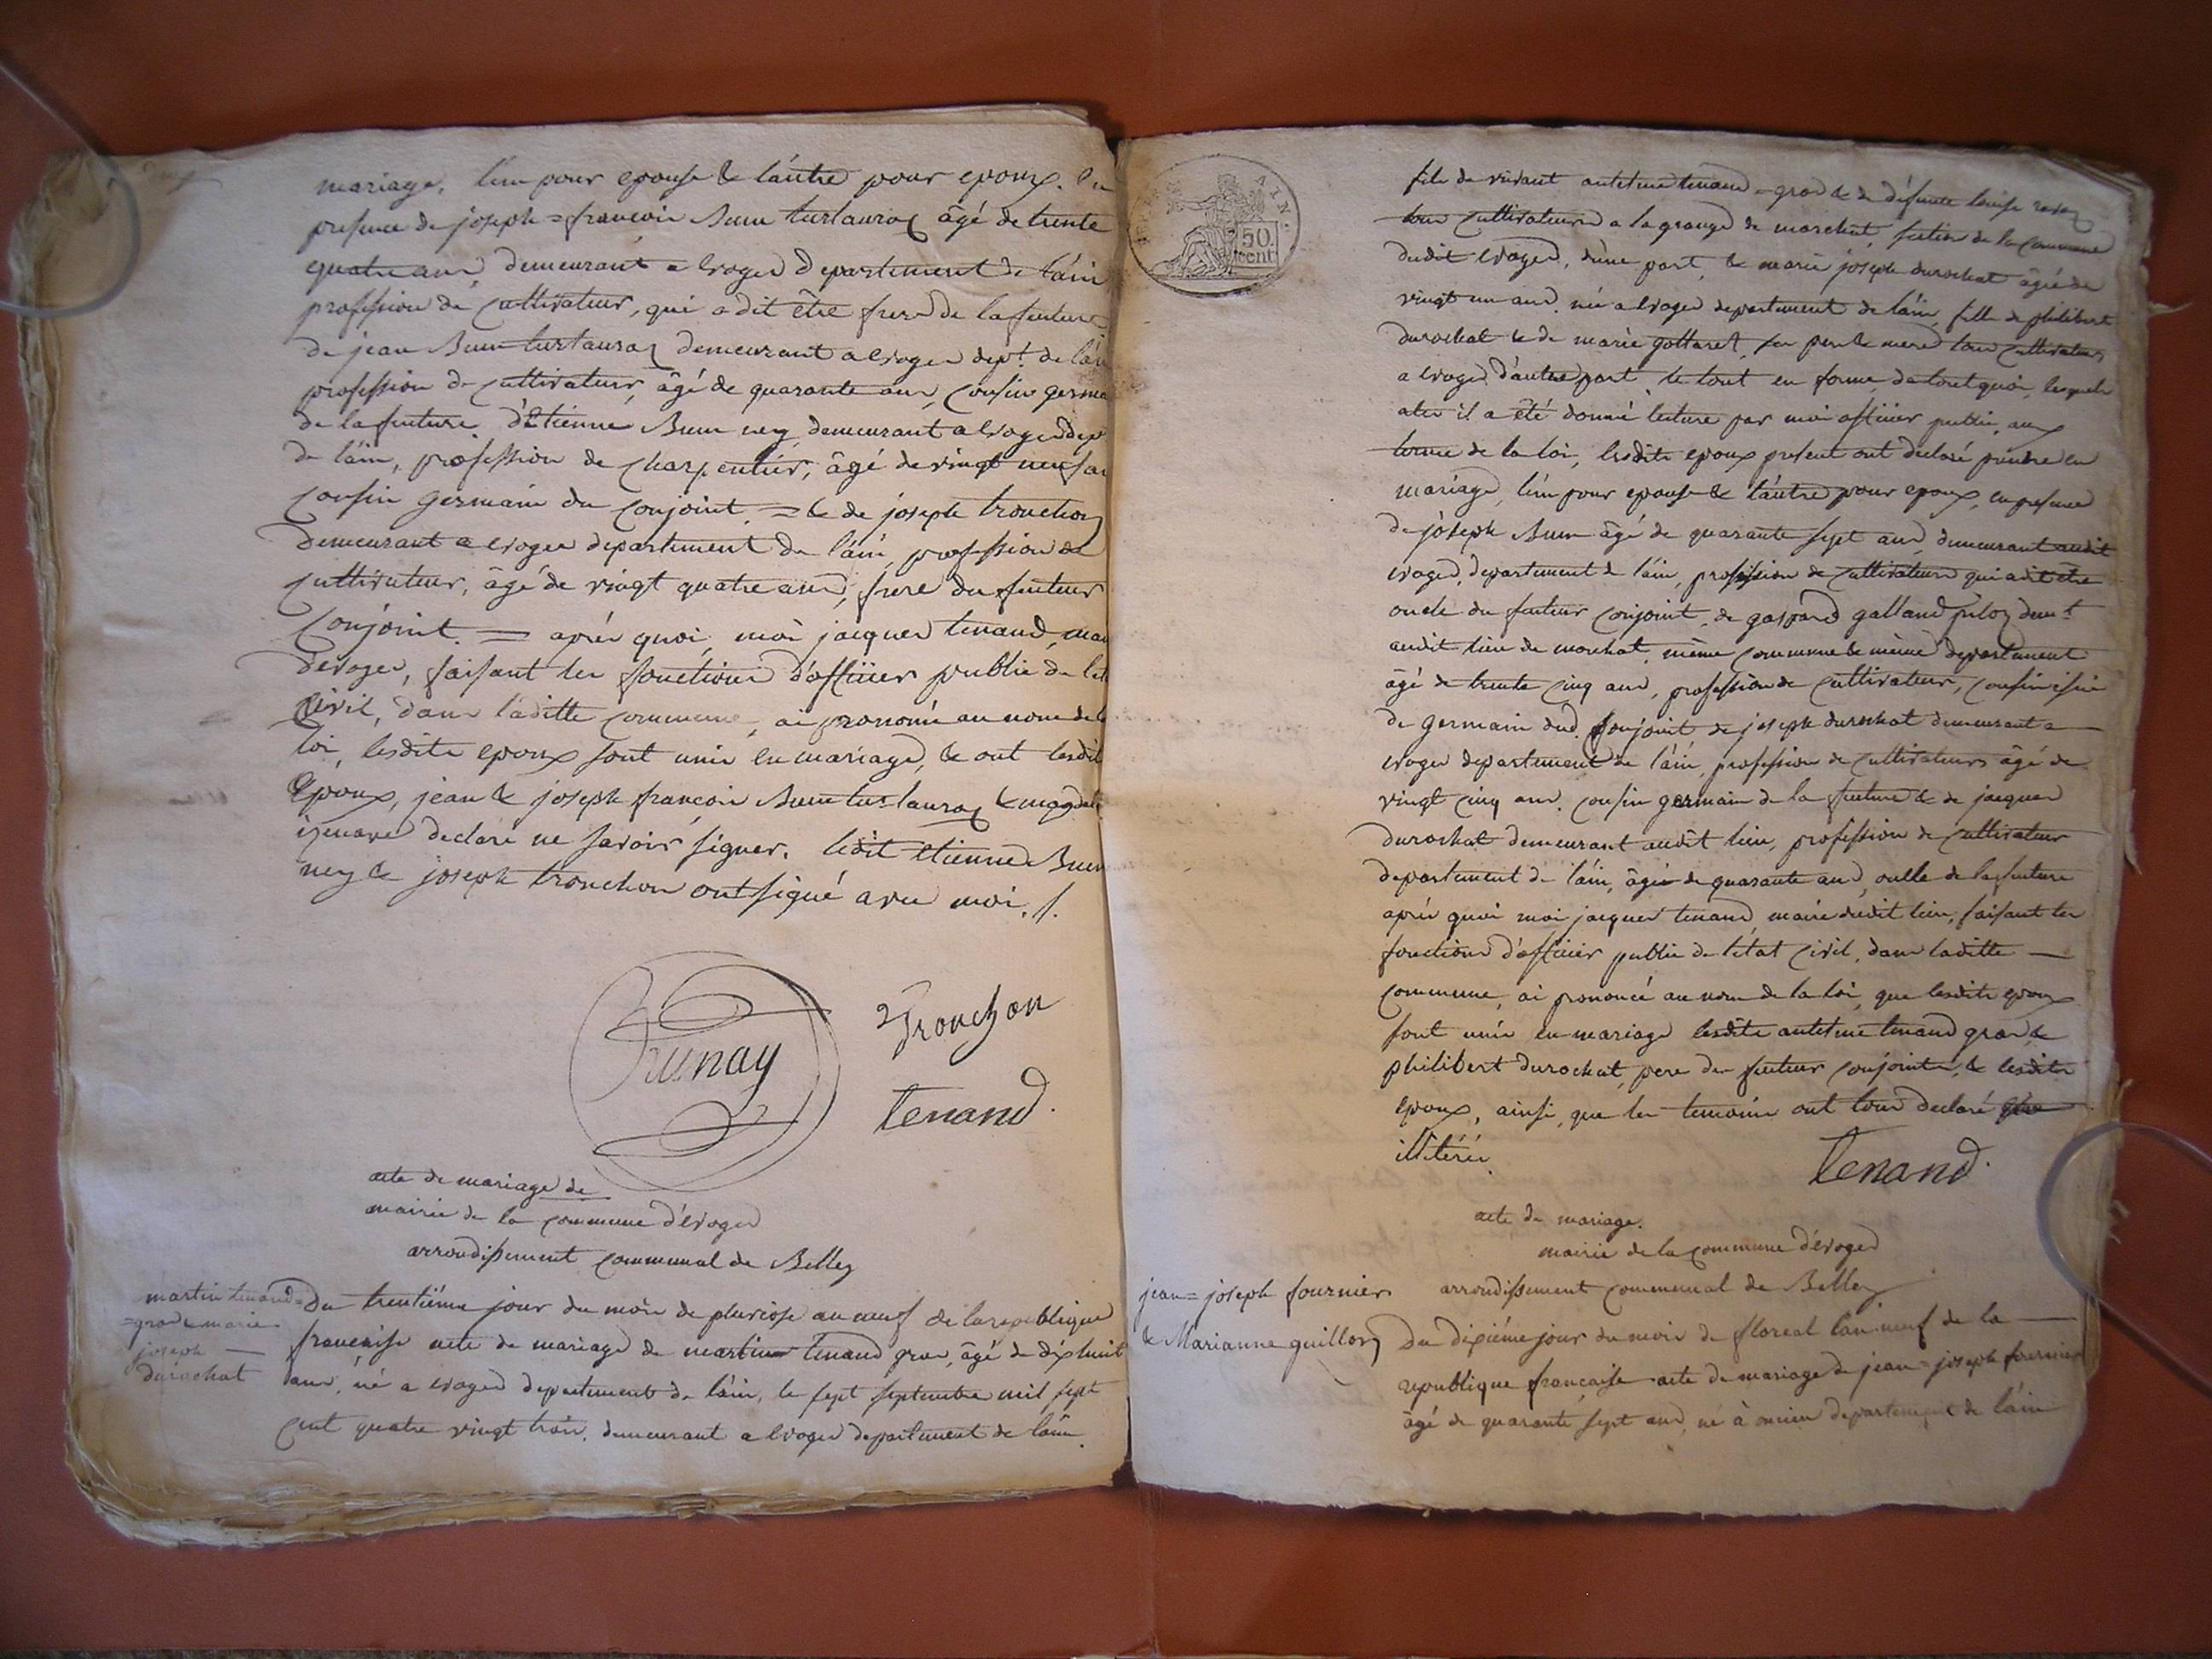 mariage, l'un pour epouse & l'autre pour epoux. en
presence de joseph = francois Brun turlauraz âgé de trente
quatre ans, demeurant a evoges departement de l'ain
profession de cultivateur, qui a dit être frere de la future
de jean Brun turlauraz demeurant a evoges dept. de l'ain
profession de cultivateur, âgé de quarante ans, cousin germain
de la future d'Etienne Brun ney demeurant a evoges dept
de l'ain, profession de charpentier, âgé de vingt neuf ans
cousin germain du conjoint = & de joseph tronchon
demeurant a evoges departement de l'ain profession de
cultivateur, âgé de vingt quatre ans, frere du futeur
conjoint. = après quoi, moi jacques tenand, maire
d'evoges, faisant les fonctions d'officier public de l'etat
civil, dans laditte commune, ai prononcé au nom de la
loi, lesdits epoux sont unis en mariage, & ont lesdits
Epoux, jean & joseph francois Brun turlauraz &
declaré ne savoir signer. ledit etienne Brun
ney & joseph tronchon ont signé avec moi. /.
Brunay
Tronchon
Tenand.
acte de mariage de
mairie de la commune d'Evoges
arrondissement communal de Belley
martin tenand =
= gros & marie
joseph —
durochat
Du trentiéme jour du mois de pluviose an neuf de la republique
francaise acte de mariage de martin tenand gros, âgé de dixhuit
ans, né a evoges departement de l'ain, le sept septembre mil sept
cent quatre vingt trois, demeurant a evoges departement de l'ain.
AIN
50 cent
fils de vivant antelme tenand = gros & de défunte louise
tous cultivateurs a la grange de morchat, section de la commune
dudit evoges, d'une part, & marie joseph durochat âgée de
vingt un ans, née a evoges departement de l'ain, fille de philibert
durochat & de marie gottaret, ses pere & mere tous cultivateurs
a evoges d'autre part, le tout en forme de tout quoi, lesquels
actes il a été donné lecture par moi officier public, aux
terme de la loi, lesdits epoux present ont declaré prendre en
mariage, l'un pour epouse & l'autre pour epoux, en presence
de joseph Brun âgé de quarante sept ans, demeurant audit
evoges, departement de l'ain, profession de cultivateur qui a dit être
oncle du futeur conjoint, de gaspard galland piloz demt.
audit lieu de morchat, même commune & même departement
âgé de trente cinq ans, profession de cultivateur, cousin issu
de germain dud. conjoint de joseph durochat demeurant a —
evoges departement de l'ain, profession de cultivateurs âgé de
vingt cinq ans, cousin germain de la future & de jacques
durochat demeurant audit lieu, profession de cultivateur
departement de l'ain, âgé de quarante ans, oncle de la future
après quoi moi jacques tenand, maire dudit lieu, faisant les
fonctions d'officier public de l'etat civil, dans laditte —
commune, ai prononcé au nom de la loi, que lesdits epoux
sont unis en mariage lesdits antelme tenand gros, &
philibert durochat, pere des futeur conjoints, & lesdits
epoux, ainsi que les temoins ont tous declaré
illitérés.
Tenand.
acte de mariage.
mairie de la commune d'Evoges
arrondissement communal de Belley
jean = joseph fournier
& Marianne guilloz
Du dixiéme jour du mois de floreal l'an neuf de la —
republique française acte de mariage de jean = joseph fournier
âgé de quarante sept ans, né à oncieu departement de l'ain